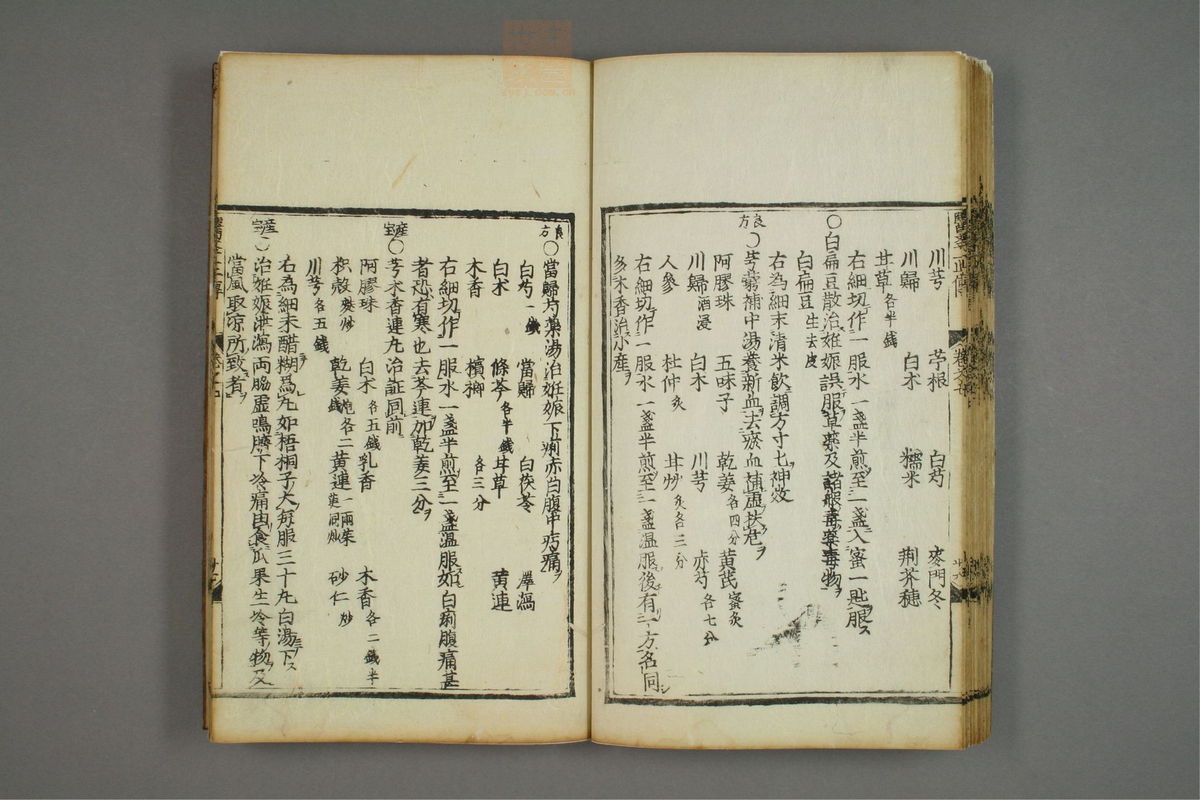 川芎 苧根 白芍 麥門冬
川歸 白朮 糯米 荊芥穗
甘草各半錢
右細切作一服水一盞半煎至一盞入蜜一匙服
〇白扁豆散治姙娠誤服草藥及諸般毒藥毒物
白扁豆生去皮
右為細末清米飲調方寸匕神效
良方
〇芎藭補中湯養新血去瘀血補虛扶危
阿膠珠 五味子 乾姜各四分 黃芪蜜炙
川歸酒浸 白朮 川芎 赤芍各七分
人參 杜仲炙 甘草炙各三分
右細切作一服水一盞半煎至一盞溫服後有一方名同
多木香治小產
良方
〇當歸芍藥湯治姙娠下痢赤白腹中㽲痛
白芍一錢 當歸 白茯苓 澤瀉
白朮 條芩各半錢 甘草 黃連
木香 檳榔各三分
右細切作一服水一盞半煎至一盞溫服如白痢腹痛甚
者恐有寒也去芩連加乾姜三分
產宝
〇芩朮香連丸治証同前
阿膠珠 白朮各五錢 乳香 木香各二錢半
枳殼麩炒 乾姜炮各二錢 黃連一兩茱萸同炒 砂仁炒
川芎各五錢
右為細末醋糊為丸如梧桐子大每服三十丸白湯下
產宝
〇治姙娠泄瀉兩脇虛鳴臍下冷痛由食瓜果生冷等物及
當風取涼所致者